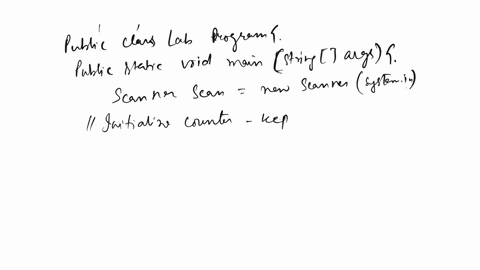 Public class Lab Program{.
Public static void main (String [] args){.
Scanner Scan = new Scanner (System.in)
// Initialize counter - kep